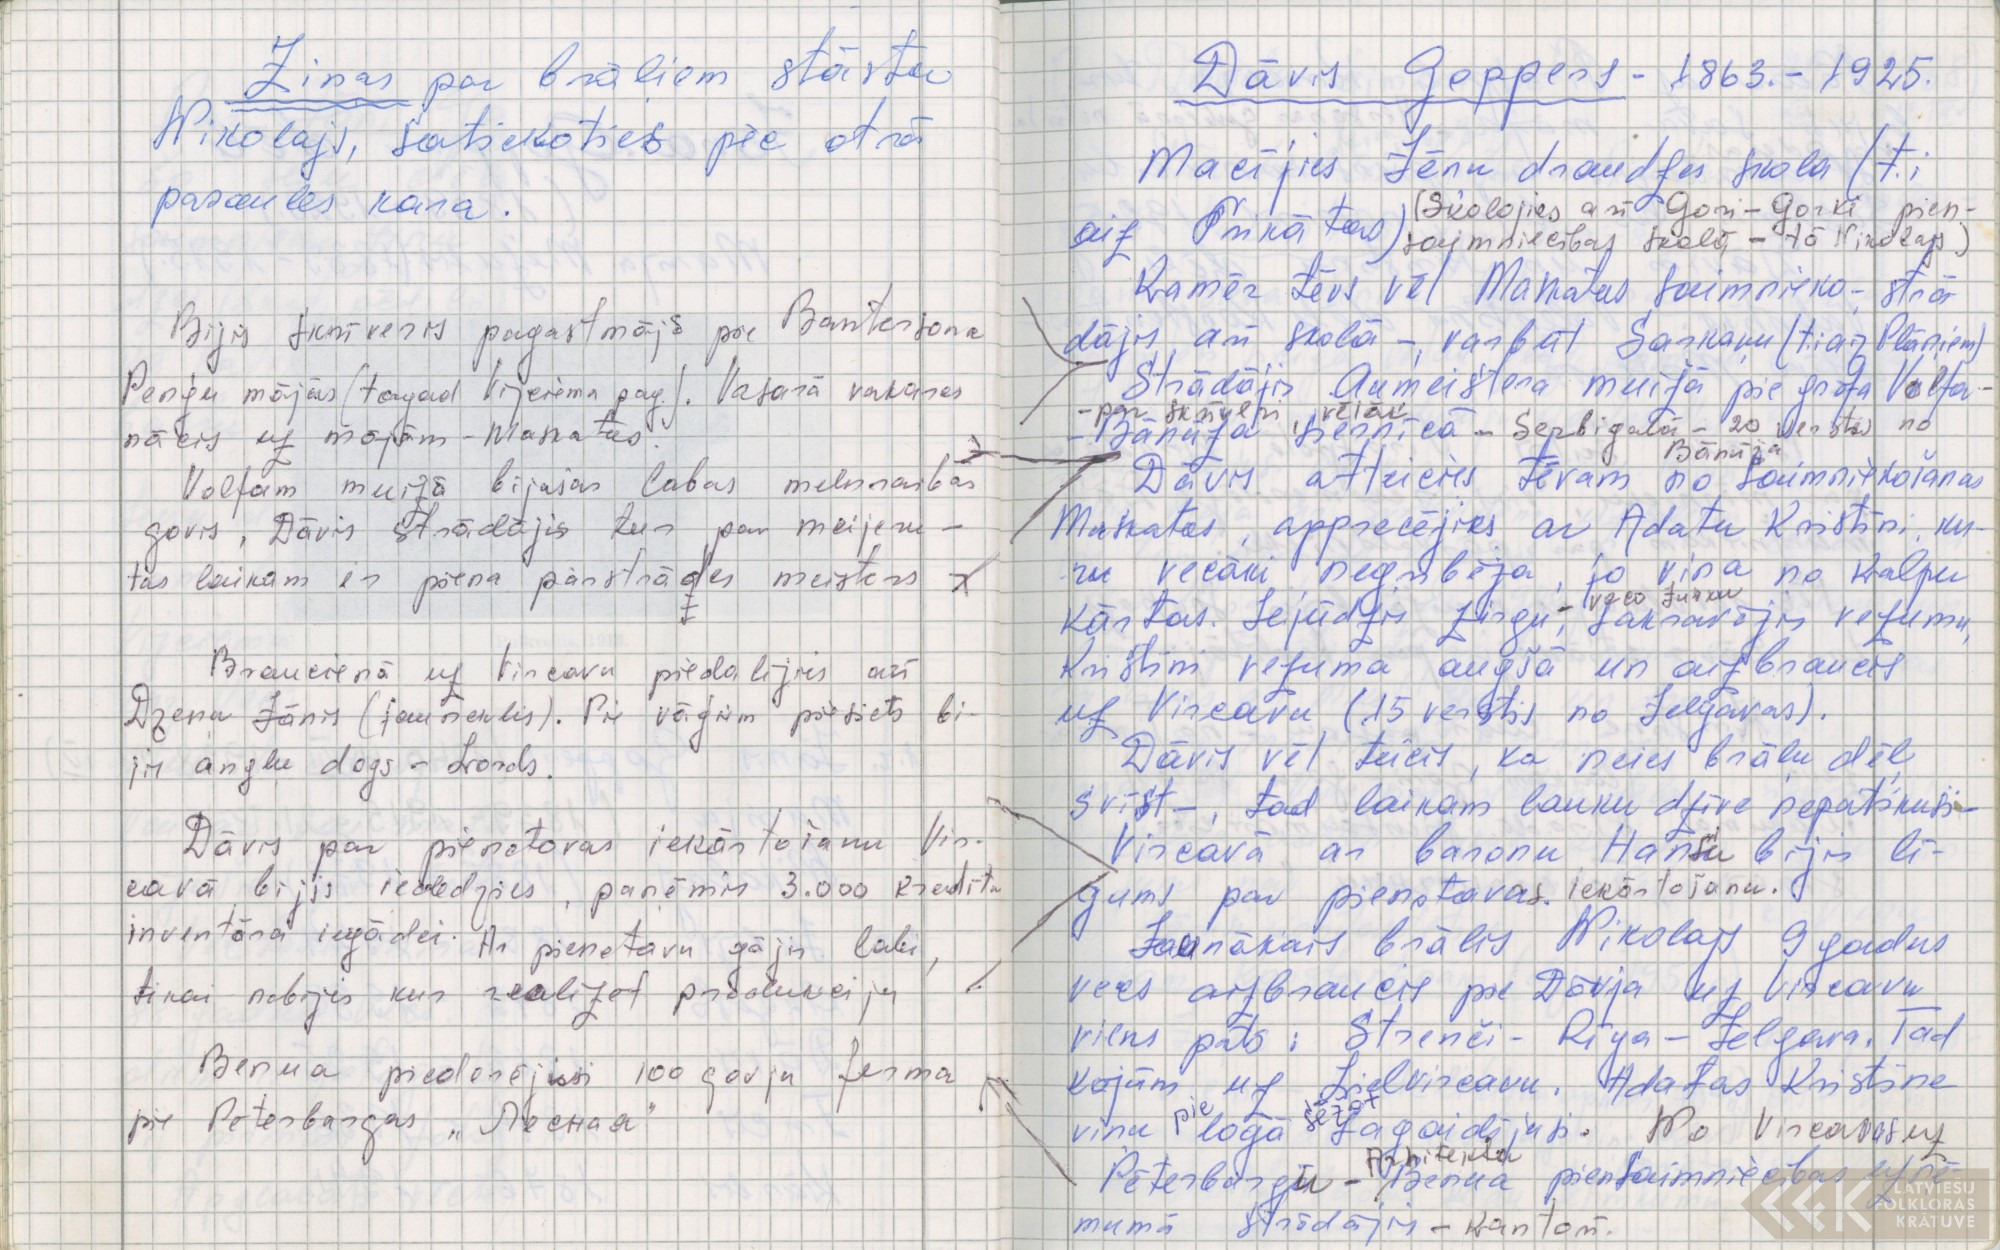 Ziņas par brāļiem stāsta
Nikolajs, satiekoties pēc otrā
pasaules kara.
Bijis skrīveris pagastmājā pie Bantersona
Pengu mājās (tagad Vijciema pag.). Vasarā vakaros
nācis uz mājām - Maskatas.
Volfam muižā bijušas labas melnraibas
govis, Dāvis strādājis tur par meijeru -
tas laikam ir piena pārstrādes meistars
Braucienā uz Vircavu piedalījies arī
Dzeņu Jānis (jauneklis). Pie vāģiem piesiets bi-
jis angļu dogs - Lords.
Dāvis par pienotavas iekārtošanu Vir-
cavā bijis ieķēdzies, paņēmis 3.000 kredītu
inventāra iegādei. Ar pienotavu gājis labi,
tikai nebijis kur realizēt produkciju
Benua piederējusi 100 govju ferma
pie Pēterburgas „Лесная"
Dāvis Goppers - 1863. - 1925.
Mācījies Jēru draudzes skolā (t.i
aiz Trikātas) (Skolojies arī Gori-Gorki pien-
saimniecības skolā - tā Nikolajs)
Kamēr tēvs vēl Maskatas saimnieko, strā
dājis arī skolā -, varbūt Sarkaņu (t.i aiz Plāņiem)
Strādājis Aumeistera muižā pie grāfa Volfa -
- par skrīveri, vēlāk
- Bānūža siernīcā - Serbigalā - 20 verstis no
Bānūža
Dāvis atteicies tēvam no saimniekošanas
Maskatās, apprecējies ar Adatu Kristīni, ku-
ru vecāki negribēja, jo viņa no kalpu
kārtas. Sejūdzis zirgu, veco Jurku
sakravājis vezumu,
Kristīni vezuma augšā un aizbraucis
uz Vircavu (15 verstis no Jelgavas).
Dāvis vēl teicis, ka neies brāļu dēļ
svīst -, tad laikam lauku dzīve nepatikusi -
Vircavā ar baronu Hānu bijis lī-
gums par pienotavas iekārtošanu.
Jaunākais brālis Nikolajs 9 gadus
vecs aizbraucis pie Dāvja uz Vircavu
viens pats: Strenči - Rīga - Jelgava. Tad
kājām uz Lielvircavu. Adatas Kristīne
viņu pie loga sēžot sagaidījusi. No Vircavas uz
Pēterburgu - Arhitekta Benua piensaimniecības uzņē-
mumā strādājis - kantorī.
LATVIEŠU
FOLKLORAS
KRĀTUVE